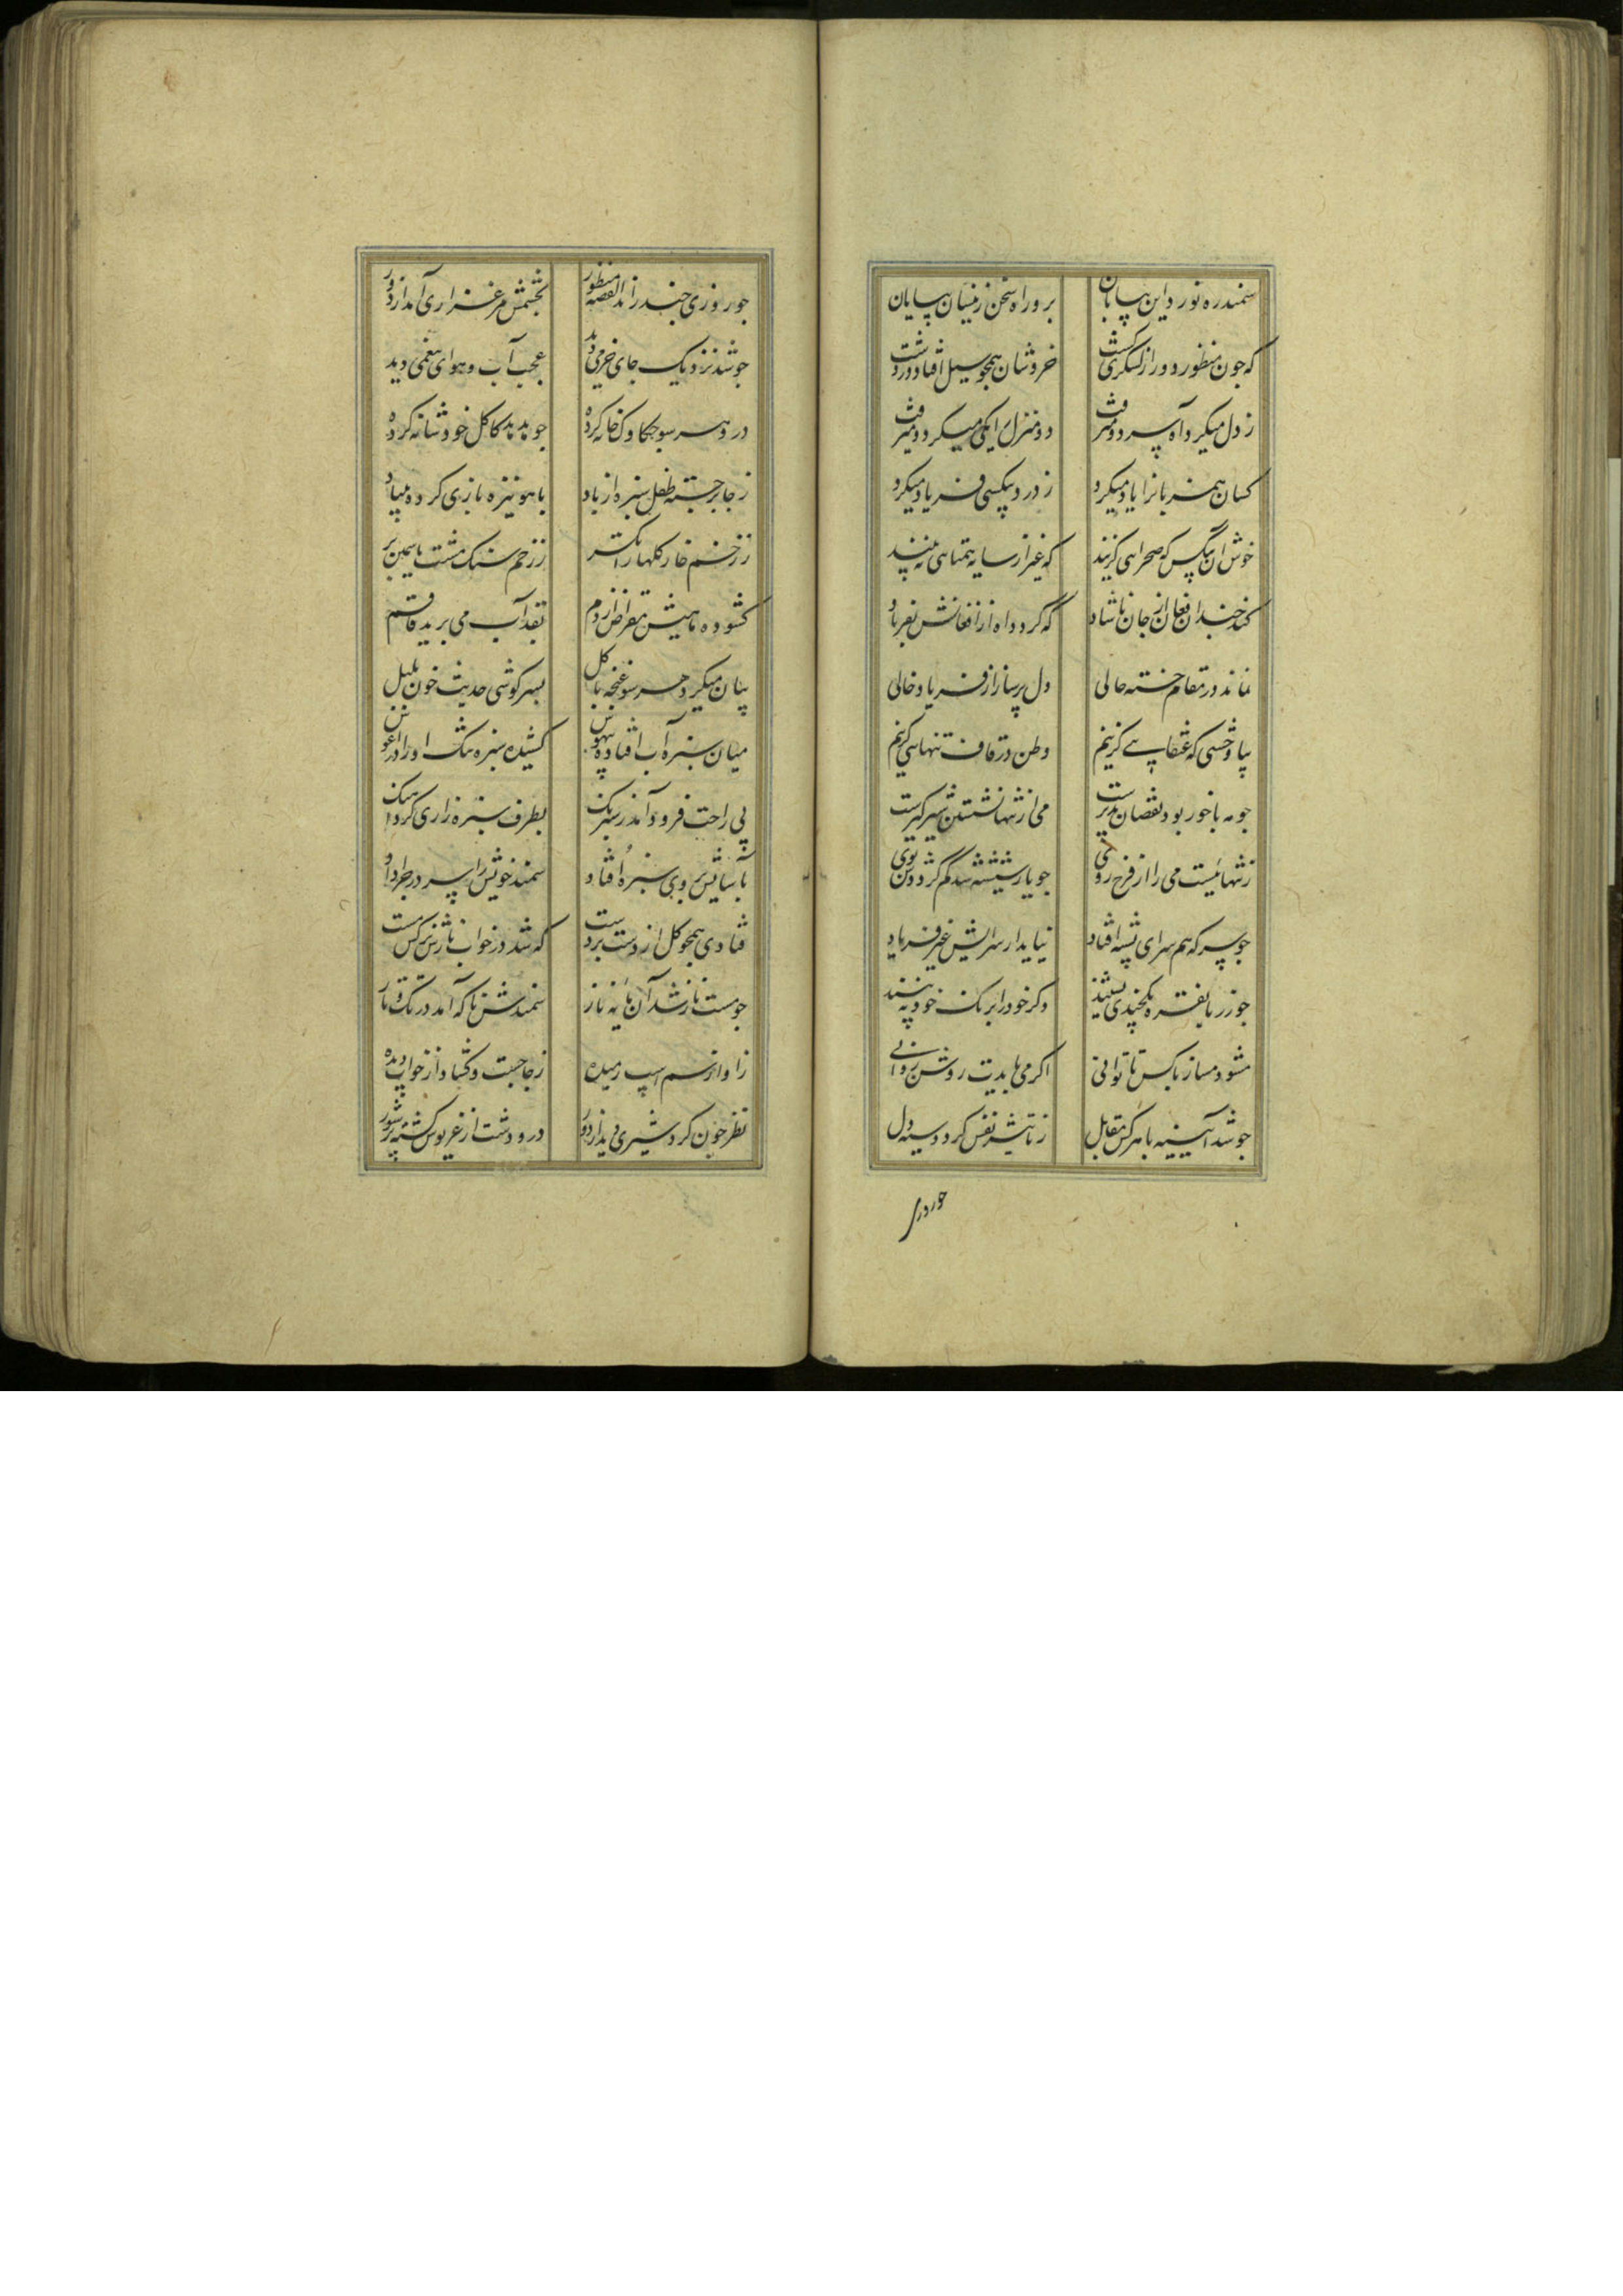 سمند ره نورد این بیابان برد راه سخن زینسان بپایان
که چون منظور دور از لشکری گشت خروشان همچو سیل افتاد در دشت
ز دل میکرد آه سرد و میرفت دو منزل را یکی میکرد و میرفت
کسان همزبانرا یاد میکرد ز درد بیکسی فریاد میکرد
خوش آن بیکس که صحرایی گزیند که غیر از سایه همتایی نبیند
کند چندان فغان از جان ناشاد که گردد آه از افغانش بفریاد
نماند در مقام خسته حالی دل پرساز از فریاد خالی
بیا وحشی که عنقایی گزینیم وطن در قاف تنهایی گزینیم
چو مه با خور بود نقصان پذیرست می از تنها نشستن شیرگیرست
ز تنهائیست می را از فرح روی چو یار شیشه شد کم گرددش بوی
چو سر که همسرای پشه افتاد نیاید از سرایش غیر فریاد
چو زر با نقره یکچندی نشیند دگر خود را برنگ خود نبیند
مشو دمساز با کس تا توانی اگر می‌بایدت روشن روانی
چو شد آیینه با هرکس مقابل ز تاثیر نفس گردد سیه دل
چو روزی
چو روزی چند راند القصه منظور بچشمش مرغزاری آمد از دور
چو شد نزدیک جای خرمی دید عجب آب و هوای بیغمی دید
در و هر سو چکاوک خانه کرده چو هدهد کاکل خود شانه کرده
ز جا برجسته طفل سبزه از باد بآهو نیزه بازی کرده بنیاد
ز زخم خار گلها را ز زخم سنگ مشت یاسمین پر
گشوده ماهیش مقراض از دم بقد آب می برید قاقم
بیان میکرد هر سو غنچه با گل بسرگوشی حدیث خون بلبل
میان سبزه آب افتاده بیهوش کشیده سبزه تنگ او را در آغوش
پی راحت فرود آمد ز شبرنگ بطرف سبزه زاری کرد آهنگ
بآسایش بروی سبزه افتاد سمند خویش را سر در چرا داد
فتادی همچو گل از دست بر دست که شد در خواب نازش نرگس مست
چو مست ناز شد آن مایه ناز سمندش ناگه آمد در تک و تاز
ز آواز سم اسپ رمیده ز جا جست و گشاد از خواب دیده
نظر چون کرد شیری دید از دور در و دشت از غریوش گشته پر شور